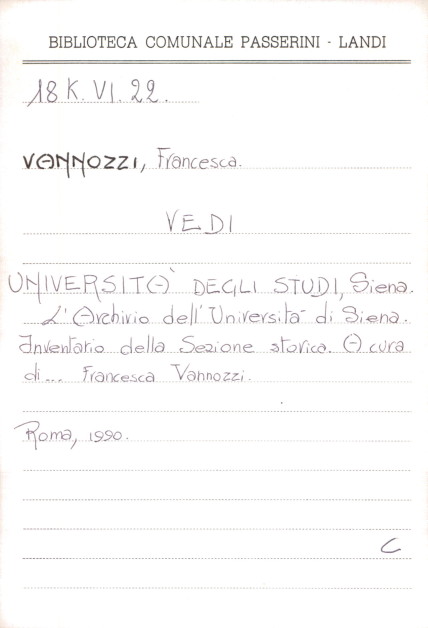 BIBLIOTECA COMUNALE PASSERINI - LANDI
18 K. VI. 22.
VANNOZZI, Francesca.
VEDI
UNIVERSITÀ DEGLI STUDI, Siena.
L'Archivio dell'Università di Siena.
Inventario della Sezione storica. A cura
di... Francesca Vannozzi.
Roma, 1990.
C